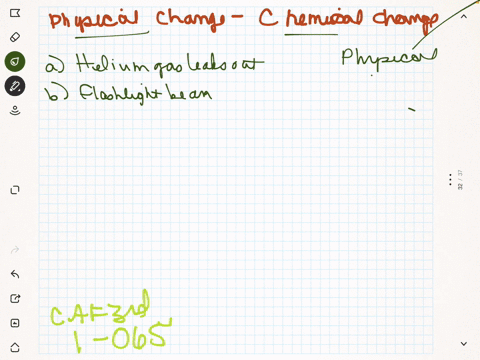 Physical Change - Chemical change
a) Helium gas leaks out
Physical
b) Flashlight beam
CAF3rd
1-065
32 / 37